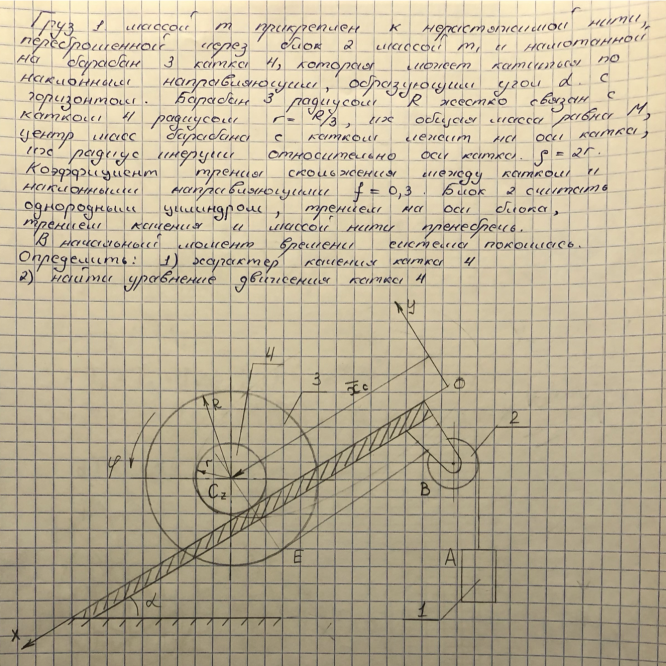 Груз 1 массой m прикреплен к нерастяжимой нити,
переброшенной через блок 2 массой m, и намотанной
на барабан 3 катка 4, которая может катиться по
наклонным направляющим, образующим угол α с
горизонтом. Барабан 3 радиусом R жестко связан с
катком 4 радиусом r = R/3, их общая масса равна M,
центр масс барабана с катком лежит на оси катка,
их радиус инерции относительно оси катка ρ = 2r.
Коэффициент трения скольжения между катком и
наклонными направляющими f = 0,3. Блок 2 считать
однородным цилиндром, трением на оси блока,
трением качения и массой нити пренебречь.
В начальный момент времени система покоилась.
Определить: 1) характер качения катка 4
2) найти уравнение движения катка 4
y
4
3
x̄c
O
2
R
φ
r
Cz
B
E
A
α
1
x